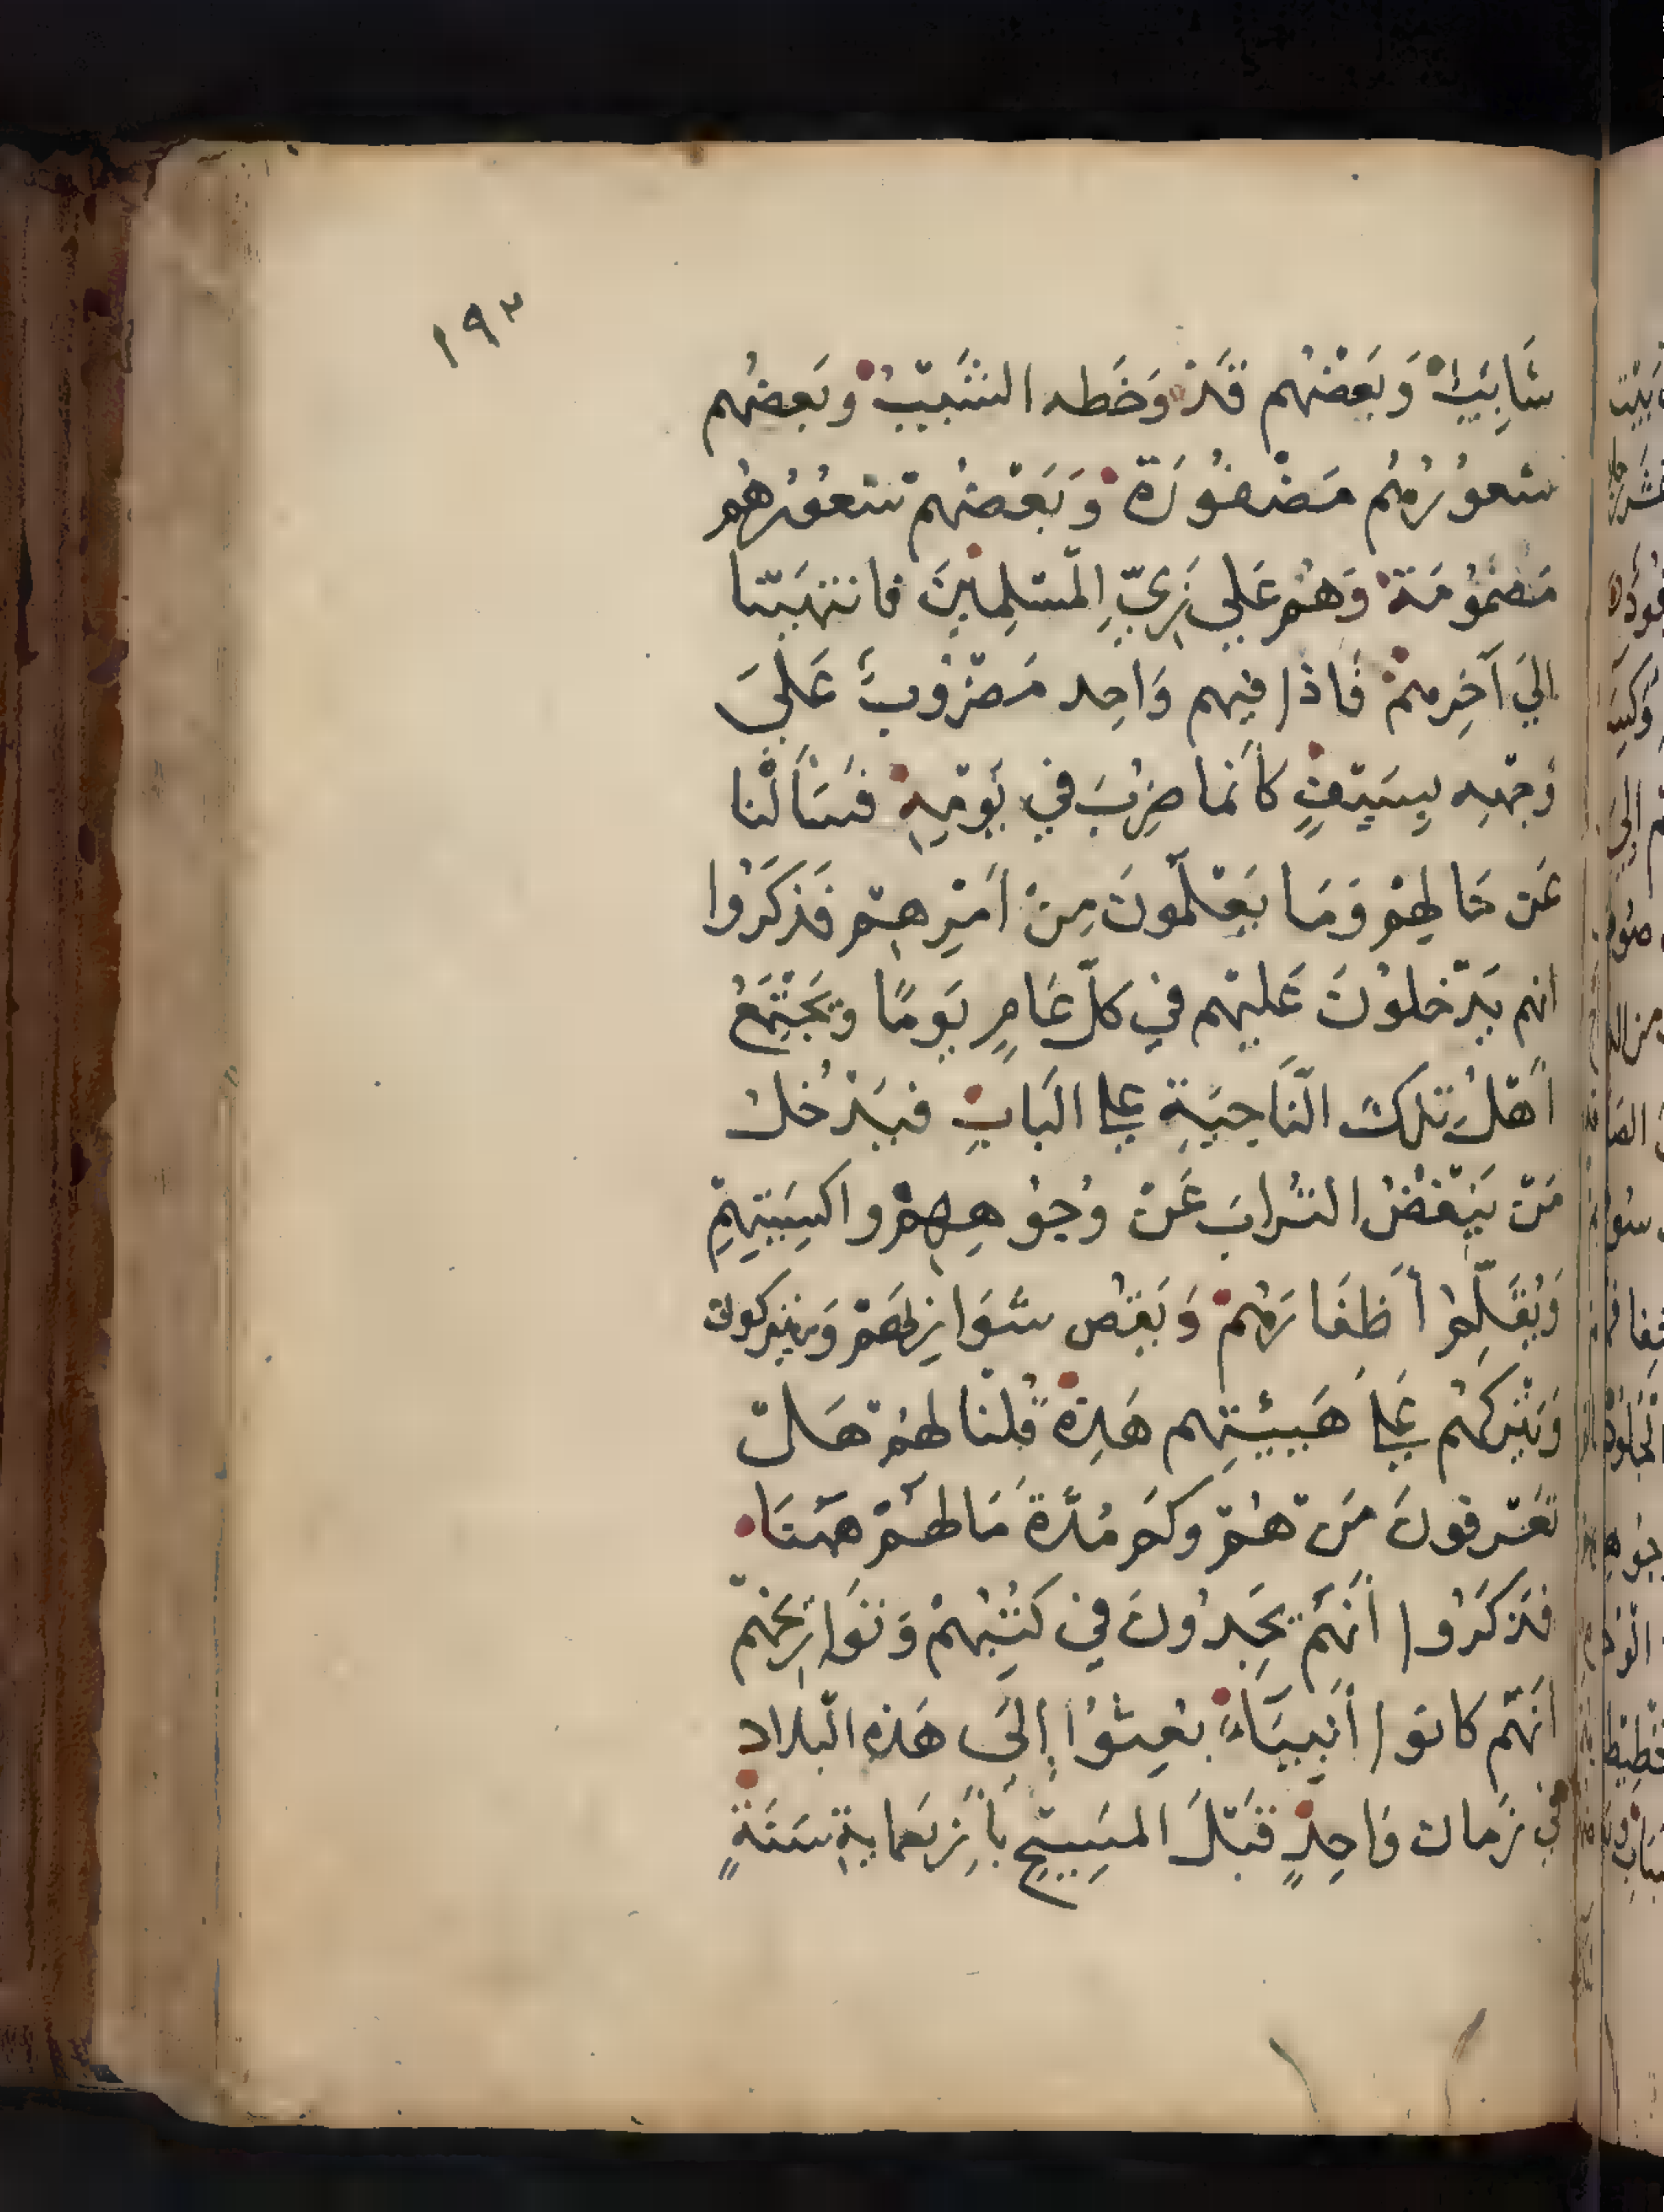 ١٩٣
شَابِيَيْنِ وَبَعْضُهُم قَدْ وَخَطَه الشَّيْبُ وَبَعضُهُم
شعُورُهُم مَضْفُورَةٌ وَبَعْضُهُمْ شعُورُهُم
مَضمُومَةٌ وَهُمْ عَلي زِيِّ الْمُسْلِمِيْنَ فانتهَيْنا
اليَ آخِرِهِمْ فَاذا فِيهِم وَاحِد مَضْرُوبٌ عَلَىَ
وَجْهِهِ بِسَيْفٍ كَأَنما ضُرِبَ في يَوْمِهِ فَسَأَلْنَا
عَن حَالِهِمْ وَمَا يَعْلَمُونَ مِنْ اَمْرِهِمْ فَذَكَرُوا
انهم يَدْخلُونَ عَليْهِم في كلّ عَامٍ يَومًا وَيَجْتَمِعُ
أَهْلُ تِلكَ النَّاحِيَةِ علي البَابِ فَيَدْخُلُ
مَنْ يَنْفُضُ التُرابَ عَنْ وُجُوهِهِمْ واكسِيَتِهِمْ
وَيُقَلِّمُ أَظفَارَهُمْ وَيَقُص شَوَارِبَهُمْ وَيتركون
وَيَتْركهُم عَلي هَيْئَتِهِم هَذِهِ قُلْنا لهُمْ هَلْ
تَعْرفونَ مَنْ هُمْ وكَم مُدَّةً مَا لهُمْ هَهُنَا
فذَكَرُوا أَنَّهُمْ يَجِدُونَ في كتُبِهُمْ وَتوَارِيخهمْ
اَنهُّم كانوا أَنبِيَاءً بُعِثُوْا إِلَى هَذِهِ الْبلاد
في زَمان وَاحِدٍ قَبْلَ المسِيْحِ بَأَرْبَعمايةِ سَنَةٍ